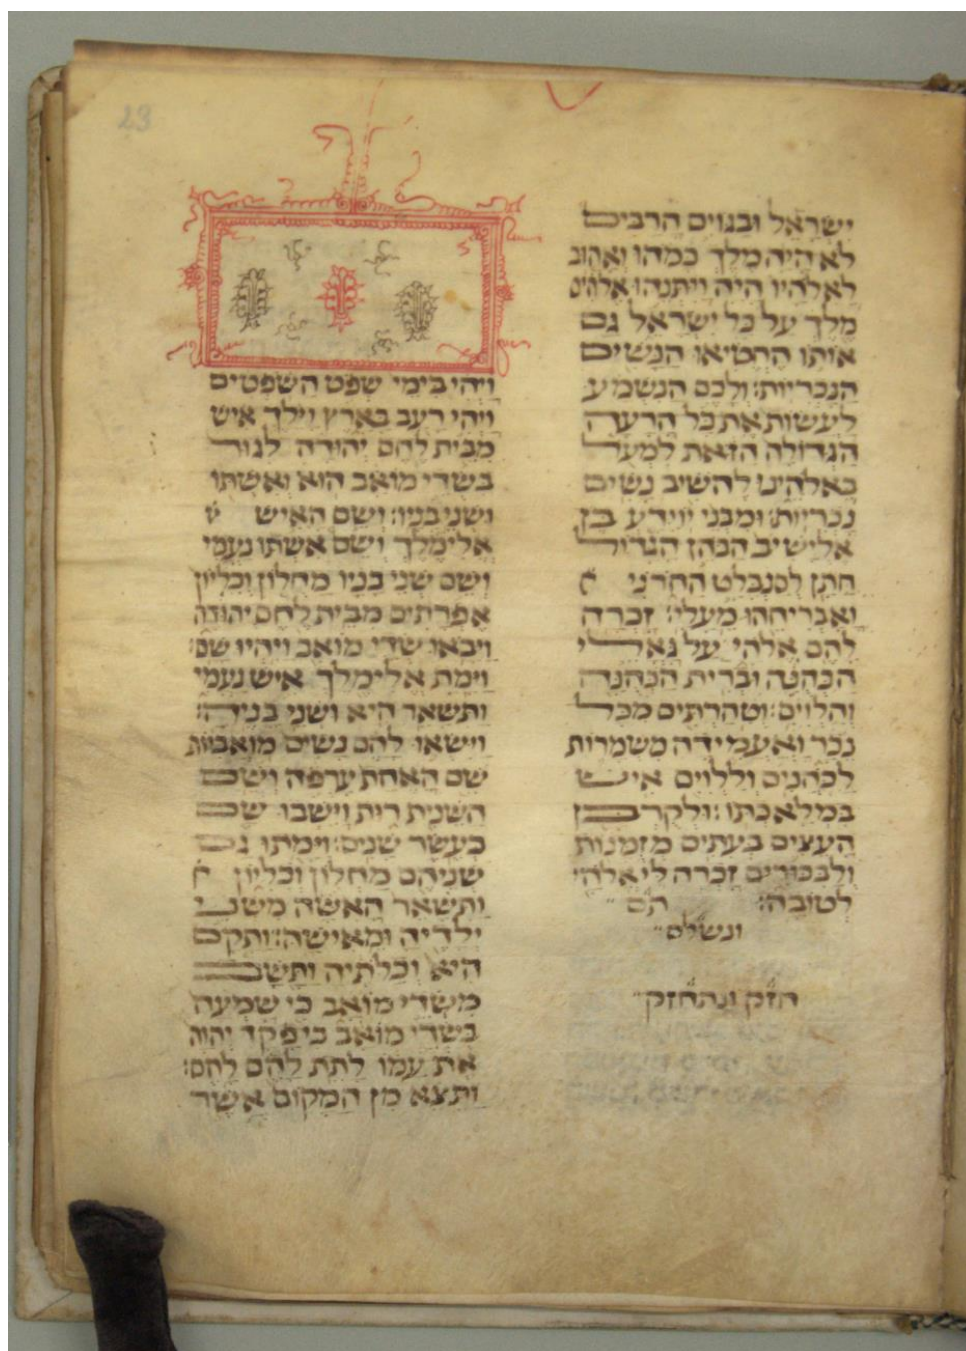 ישראל ובגוים הרבים
לא היה מלך כמהו ואהוב
לאלהיו היה ויתנהו אלהים
מלך על כל ישראל גם
אותו החטיאו הנשים
הנכריות: ולכם הנשמע
לעשות את כל הרעה
הגדולה הזאת למעל
באלהינו להשיב נשים
נכריות: ומבני יוידע בן
אלישיב הכהן הגדול
חתן לסנבלט החרני
ואבריחהו מעלי: זכרה
להם אלהי על גאלי
הכהנה וברית הכהנה
והלוים: וטהרתים מכל
נכר ואעמידה משמרות
לכהנים וללוים איש
במלאכתו: ולקרבן
העצים בעתים מזמנות
ולבכורים זכרה לי אלהי
לטובה: תם
ונשלם
חזק ונתחזק
23
ויהי בימי שפט השפטים
ויהי רעב בארץ וילך איש
מבית לחם יהודה לגור
בשדי מואב הוא ואשתו
ושני בניו: ושם האיש
אלימלך ושם אשתו נעמי
ושם שני בניו מחלון וכליון
אפרתים מבית לחם יהודה
ויבאו שדי מואב ויהיו שם:
וימת אלימלך איש נעמי
ותשאר היא ושני בניה:
וישאו להם נשים מואביות
שם האחת ערפה ושם
השנית רות וישבו שם
כעשר שנים: וימתו גם
שניהם מחלון וכליון
ותשאר האשה משני
ילדיה ומאישה: ותקם
היא וכלתיה ותשב
משדי מואב כי שמעה
בשדי מואב כי פקד יהוה
את עמו לתת להם לחם:
ותצא מן המקום אשר